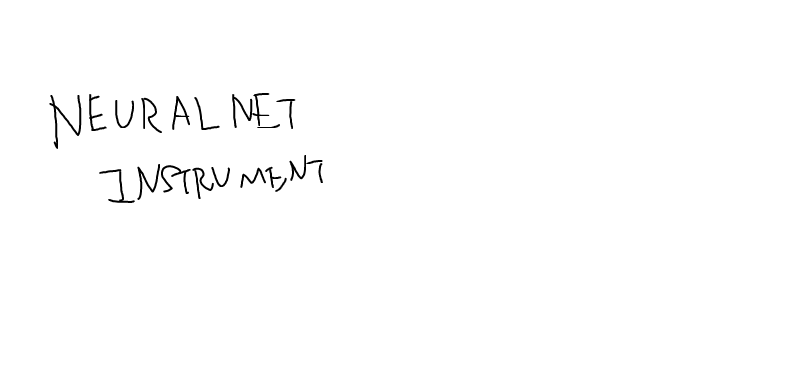 NEURAL NET
INSTRUMENT